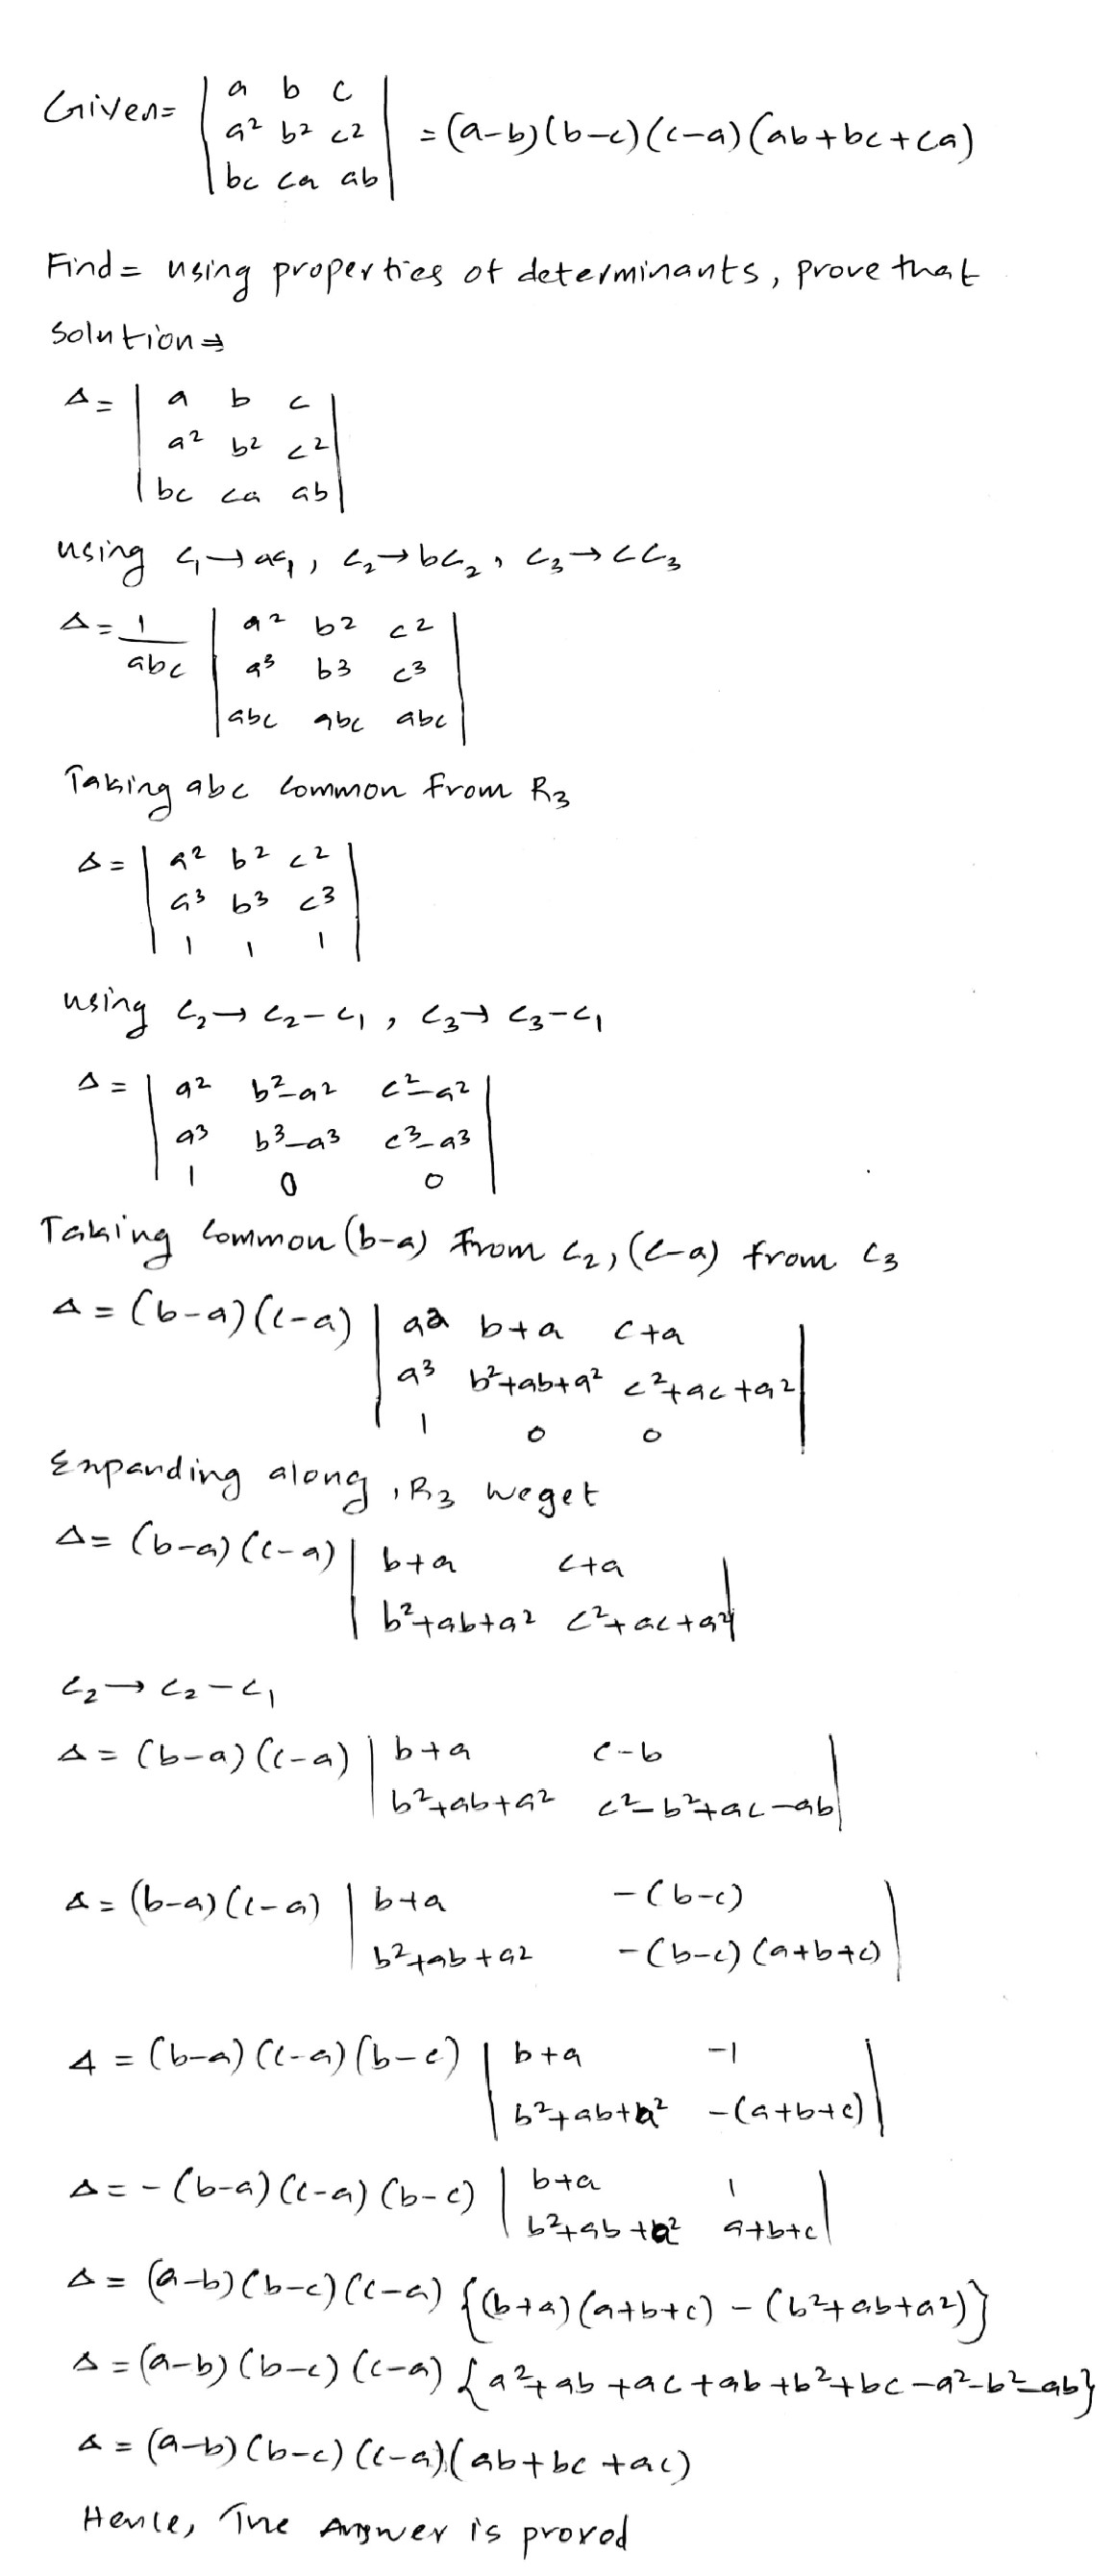 Given= | a b c |
| a² b² c² | = (a-b)(b-c)(c-a)(ab+bc+ca)
| bc ca ab |
Find = using properties of determinants, prove that
Solution⇒
Δ= | a b c |
| a² b² c² |
| bc ca ab |
using C₁→aC₁, C₂→bC₂, C₃→CC₃
Δ= 1/abc | a² b² c² |
| a³ b³ c³ |
| abc abc abc |
Taking abc Common from R₃
Δ= | a² b² c² |
| a³ b³ c³ |
| 1 1 1 |
using C₂→C₂-C₁, C₃→C₃-C₁
Δ= | a² b²-a² c²-a² |
| a³ b³-a³ c³-a³ |
| 1 0 0 |
Taking Common (b-a) from C₂, (c-a) from C₃
Δ = (b-a)(c-a) | a² b+a c+a |
| a³ b²+ab+a² c²+ac+a² |
| 1 0 0 |
Expanding along, R₃ weget
Δ= (b-a)(c-a) | b+a c+a |
| b²+ab+a² c²+ac+a² |
C₂→C₂-C₁
Δ= (b-a)(c-a) | b+a c-b |
| b²+ab+a² c²-b²+ac-ab |
Δ= (b-a)(c-a) | b+a -(b-c) |
| b²+ab+a² -(b-c)(a+b+c) |
Δ = (b-a)(c-a)(b-c) | b+a -1 |
| b²+ab+a² -(a+b+c) |
Δ= -(b-a)(c-a)(b-c) | b+a 1 |
| b²+ab+a² a+b+c |
Δ= (a-b)(b-c)(c-a) {(b+a)(a+b+c) - (b²+ab+a²)}
Δ=(a-b)(b-c)(c-a) {a²+ab+ac+ab+b²+bc-a²-b²-ab}
Δ= (a-b)(b-c)(c-a)(ab+bc+ac)
Hence, The Answer is proved